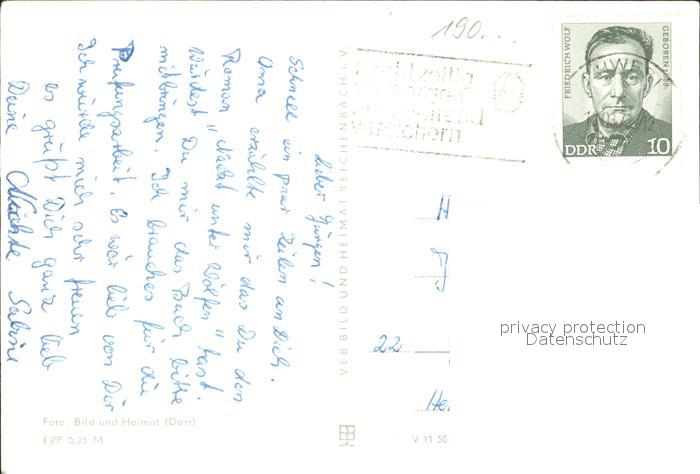 190...
rechtzeitig
vorsorgen
versichern
FRIEDRICH WOLF
GEBOREN 1888
DDR 10
Lieber Jürgen!
Schnell ein paar Zeilen an Dich.
Oma erzählte mir das Du den
Roman "Nackt unter Wölfen" hast.
Würdest Du mir das Buch bitte
mitbringen. Ich brauches für die
Prüfungsarbeit. Es wär lieb von Dir
Ich würde mich sehr freuen
es grüßt Dich ganz lieb
Deine Sabine
VEB BILD UND HEIMAT REICHENBACH i. V.
H
J
22
He
privacy protection
Datenschutz
Foto: Bild und Heimat (Darr)
EVP 0,25 M
V 11 50